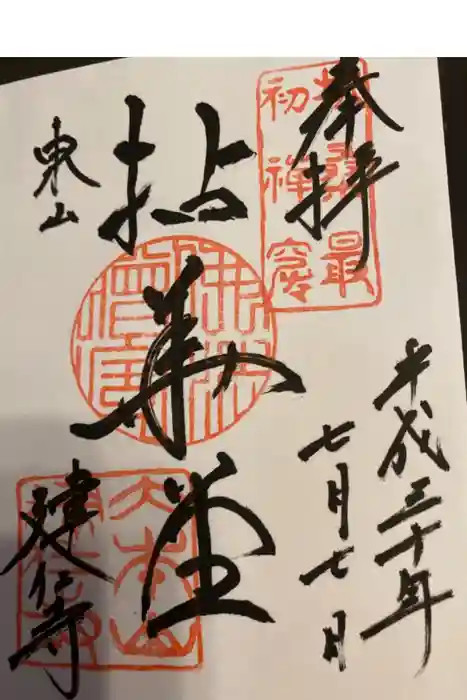 奉拝
扶桑最
初禅窟
平成三十年
七月七日
拈華堂
東山
建仁寺
大本山
建仁寺